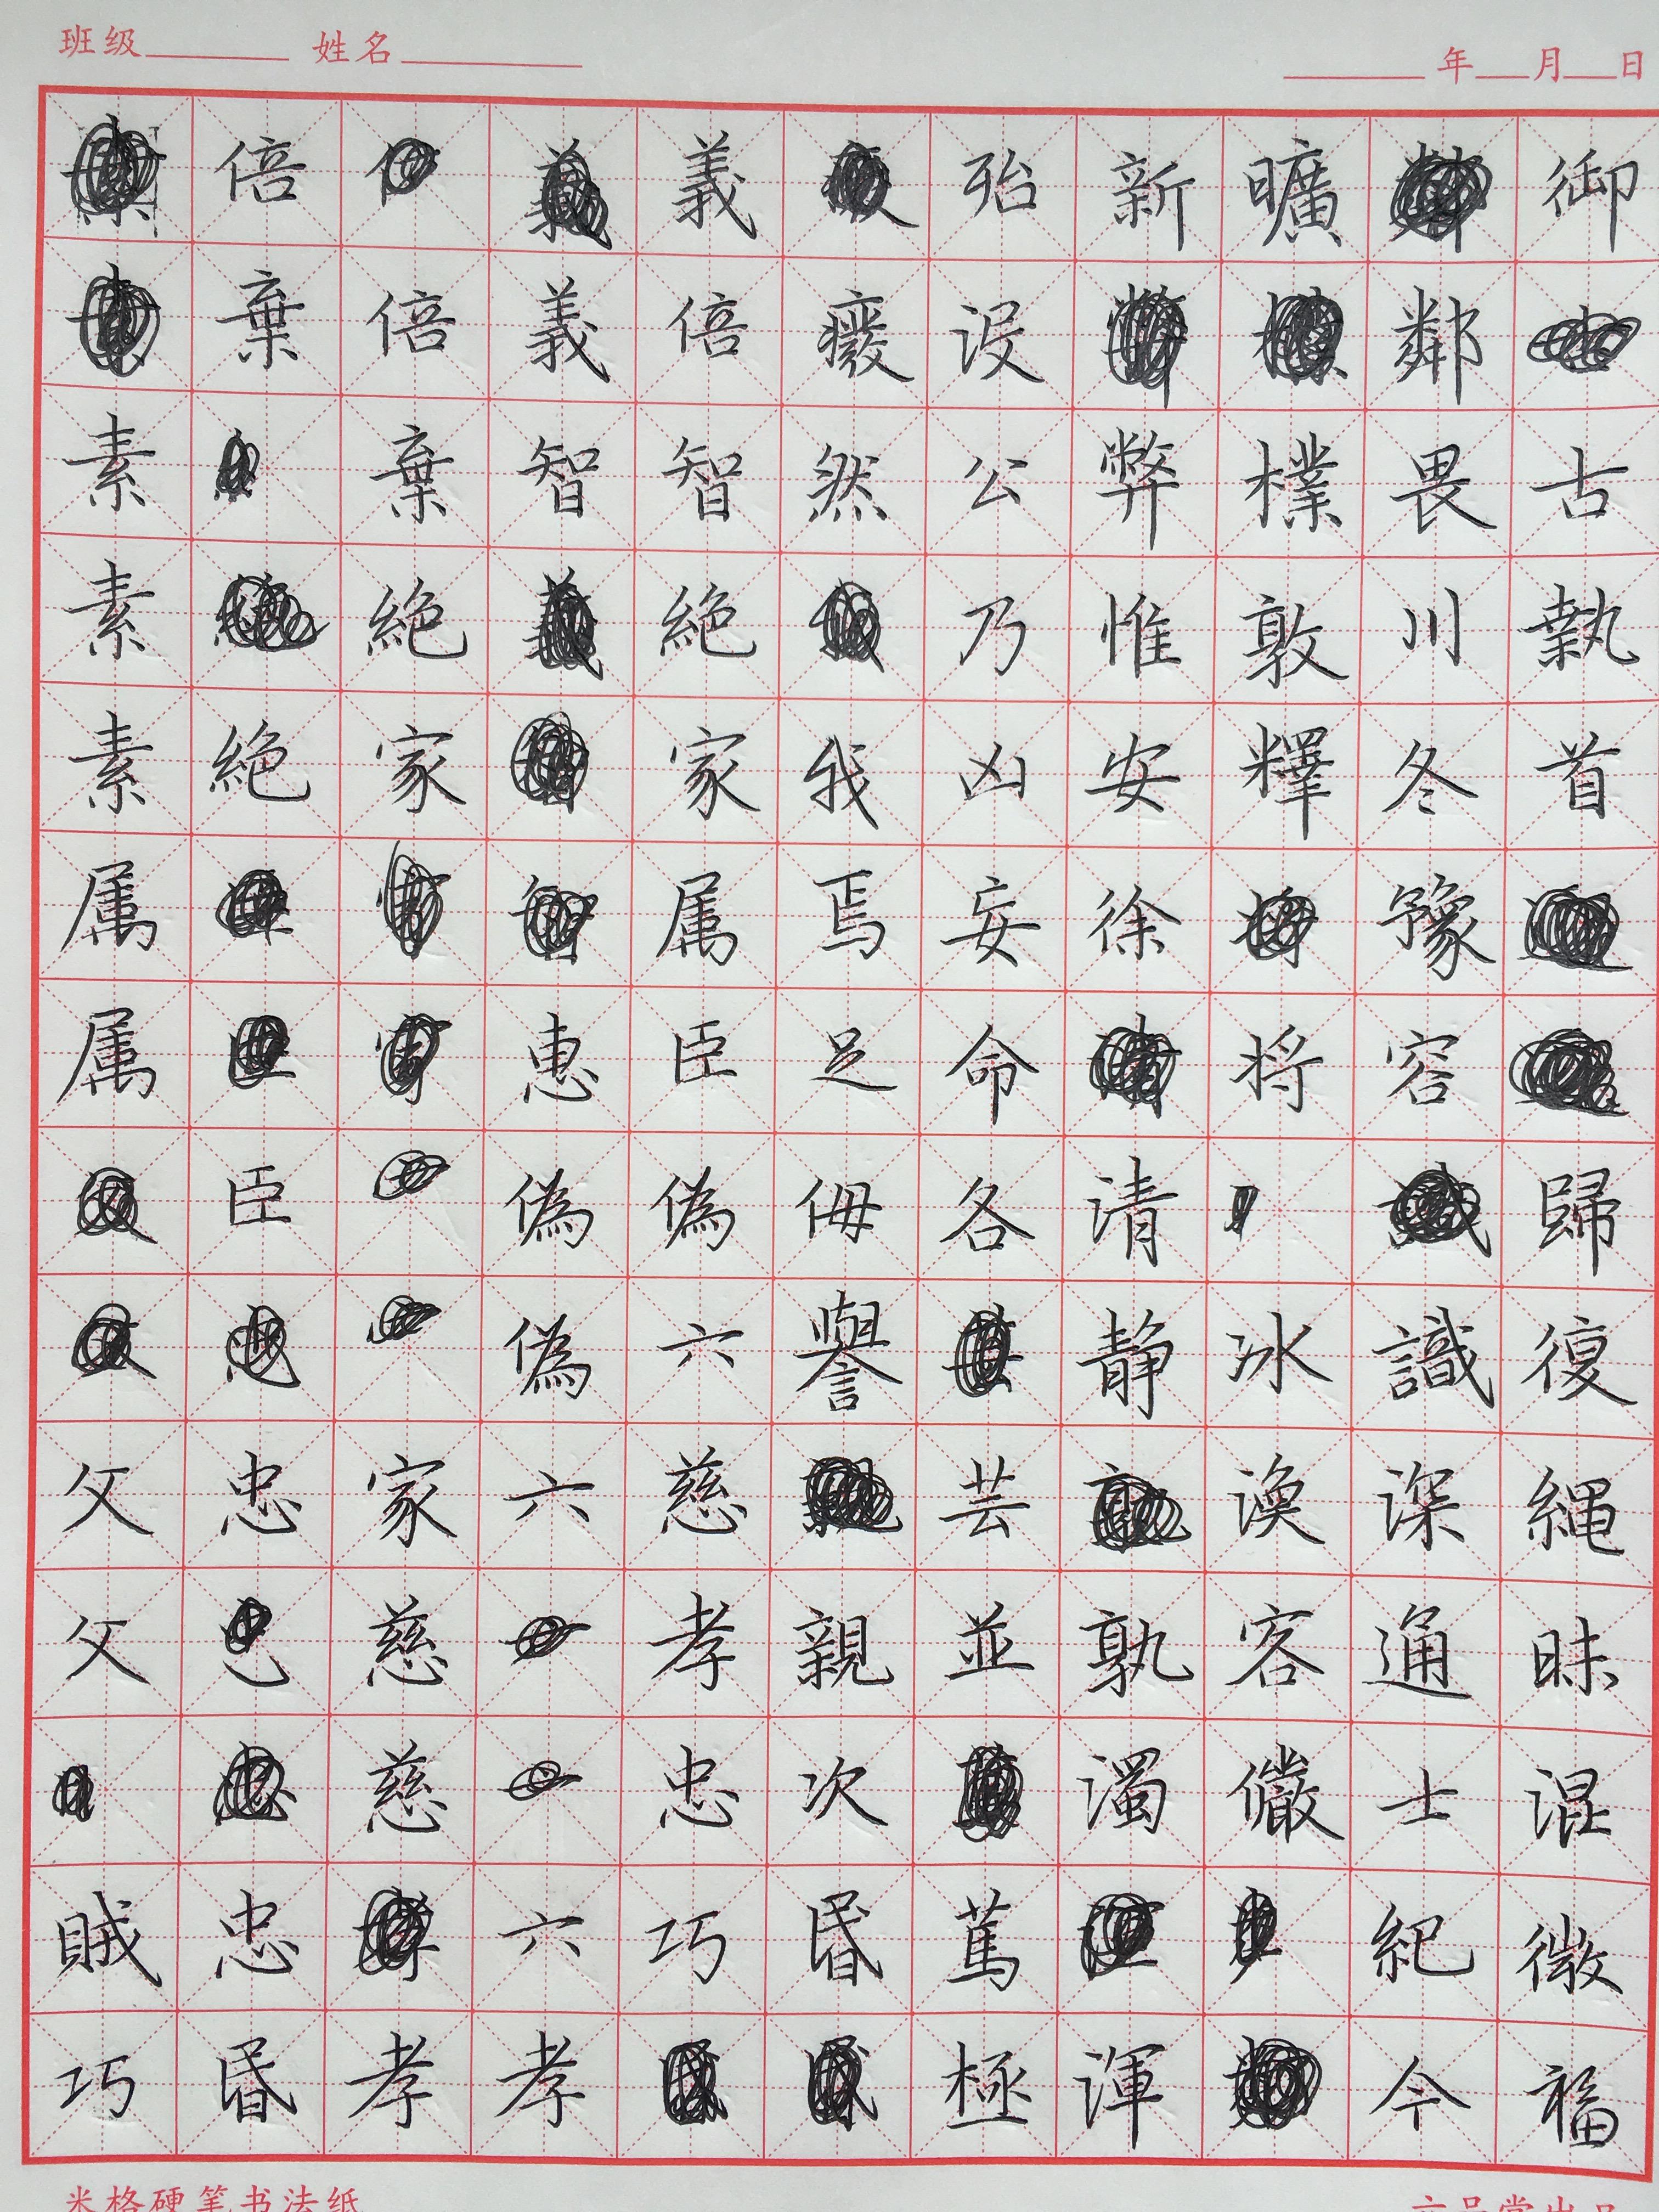 班级 姓名 年 月 日
倍 義 殆 新 曠 御
棄 倍 義 倍 癈 没 鄰
素 棄 智 智 然 公 弊 樸 畏 古
素 絶 絶 乃 惟 敦 川 執
素 絶 家 家 我 凶 安 釋 冬 首
属 属 焉 妄 徐 豫
属 惠 臣 足 命 将 容
臣 偽 偽 侮 各 清 歸
偽 六 譽 静 冰 識 復
父 忠 家 六 慈 芸 涣 深 縄
父 慈 孝 親 並 孰 客 通 昧
慈 忠 次 濁 儼 士 混
賊 忠 六 巧 昬 篤 紀 微
巧 昬 孝 孝 極 渾 今 福
米格硬笔书法纸 六品堂出品